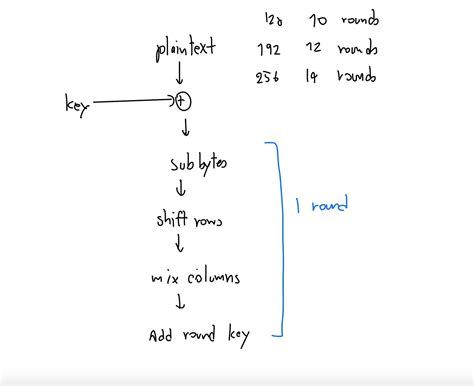 128 10 rounds
plaintext 192 12 rounds
256 14 rounds
key +
sub bytes
1 round
shift rows
mix columns
Add round key